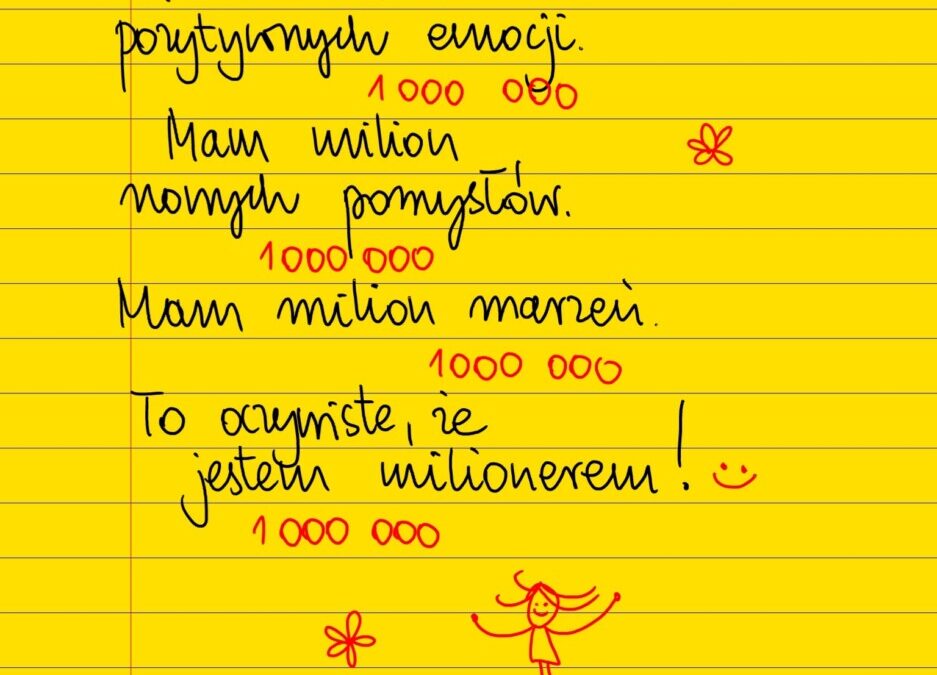 pozytywnych emocji.
1000 000
Mam milion
nowych pomysłów.
1000 000
Mam milion marzeń.
1000 000
To oczywiste, że
jestem milionerem!
1000 000